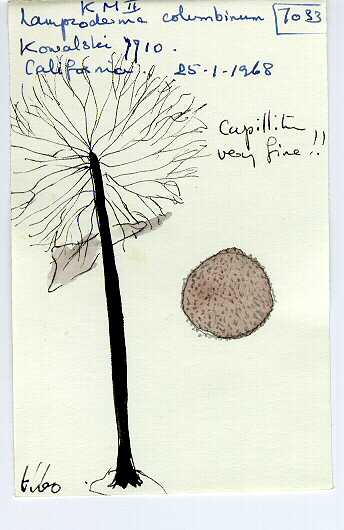 K M II
Lamproderma columbinum 7033
Kowalski 7910.
California. 25-1-1968
Capillitm
very fine!!